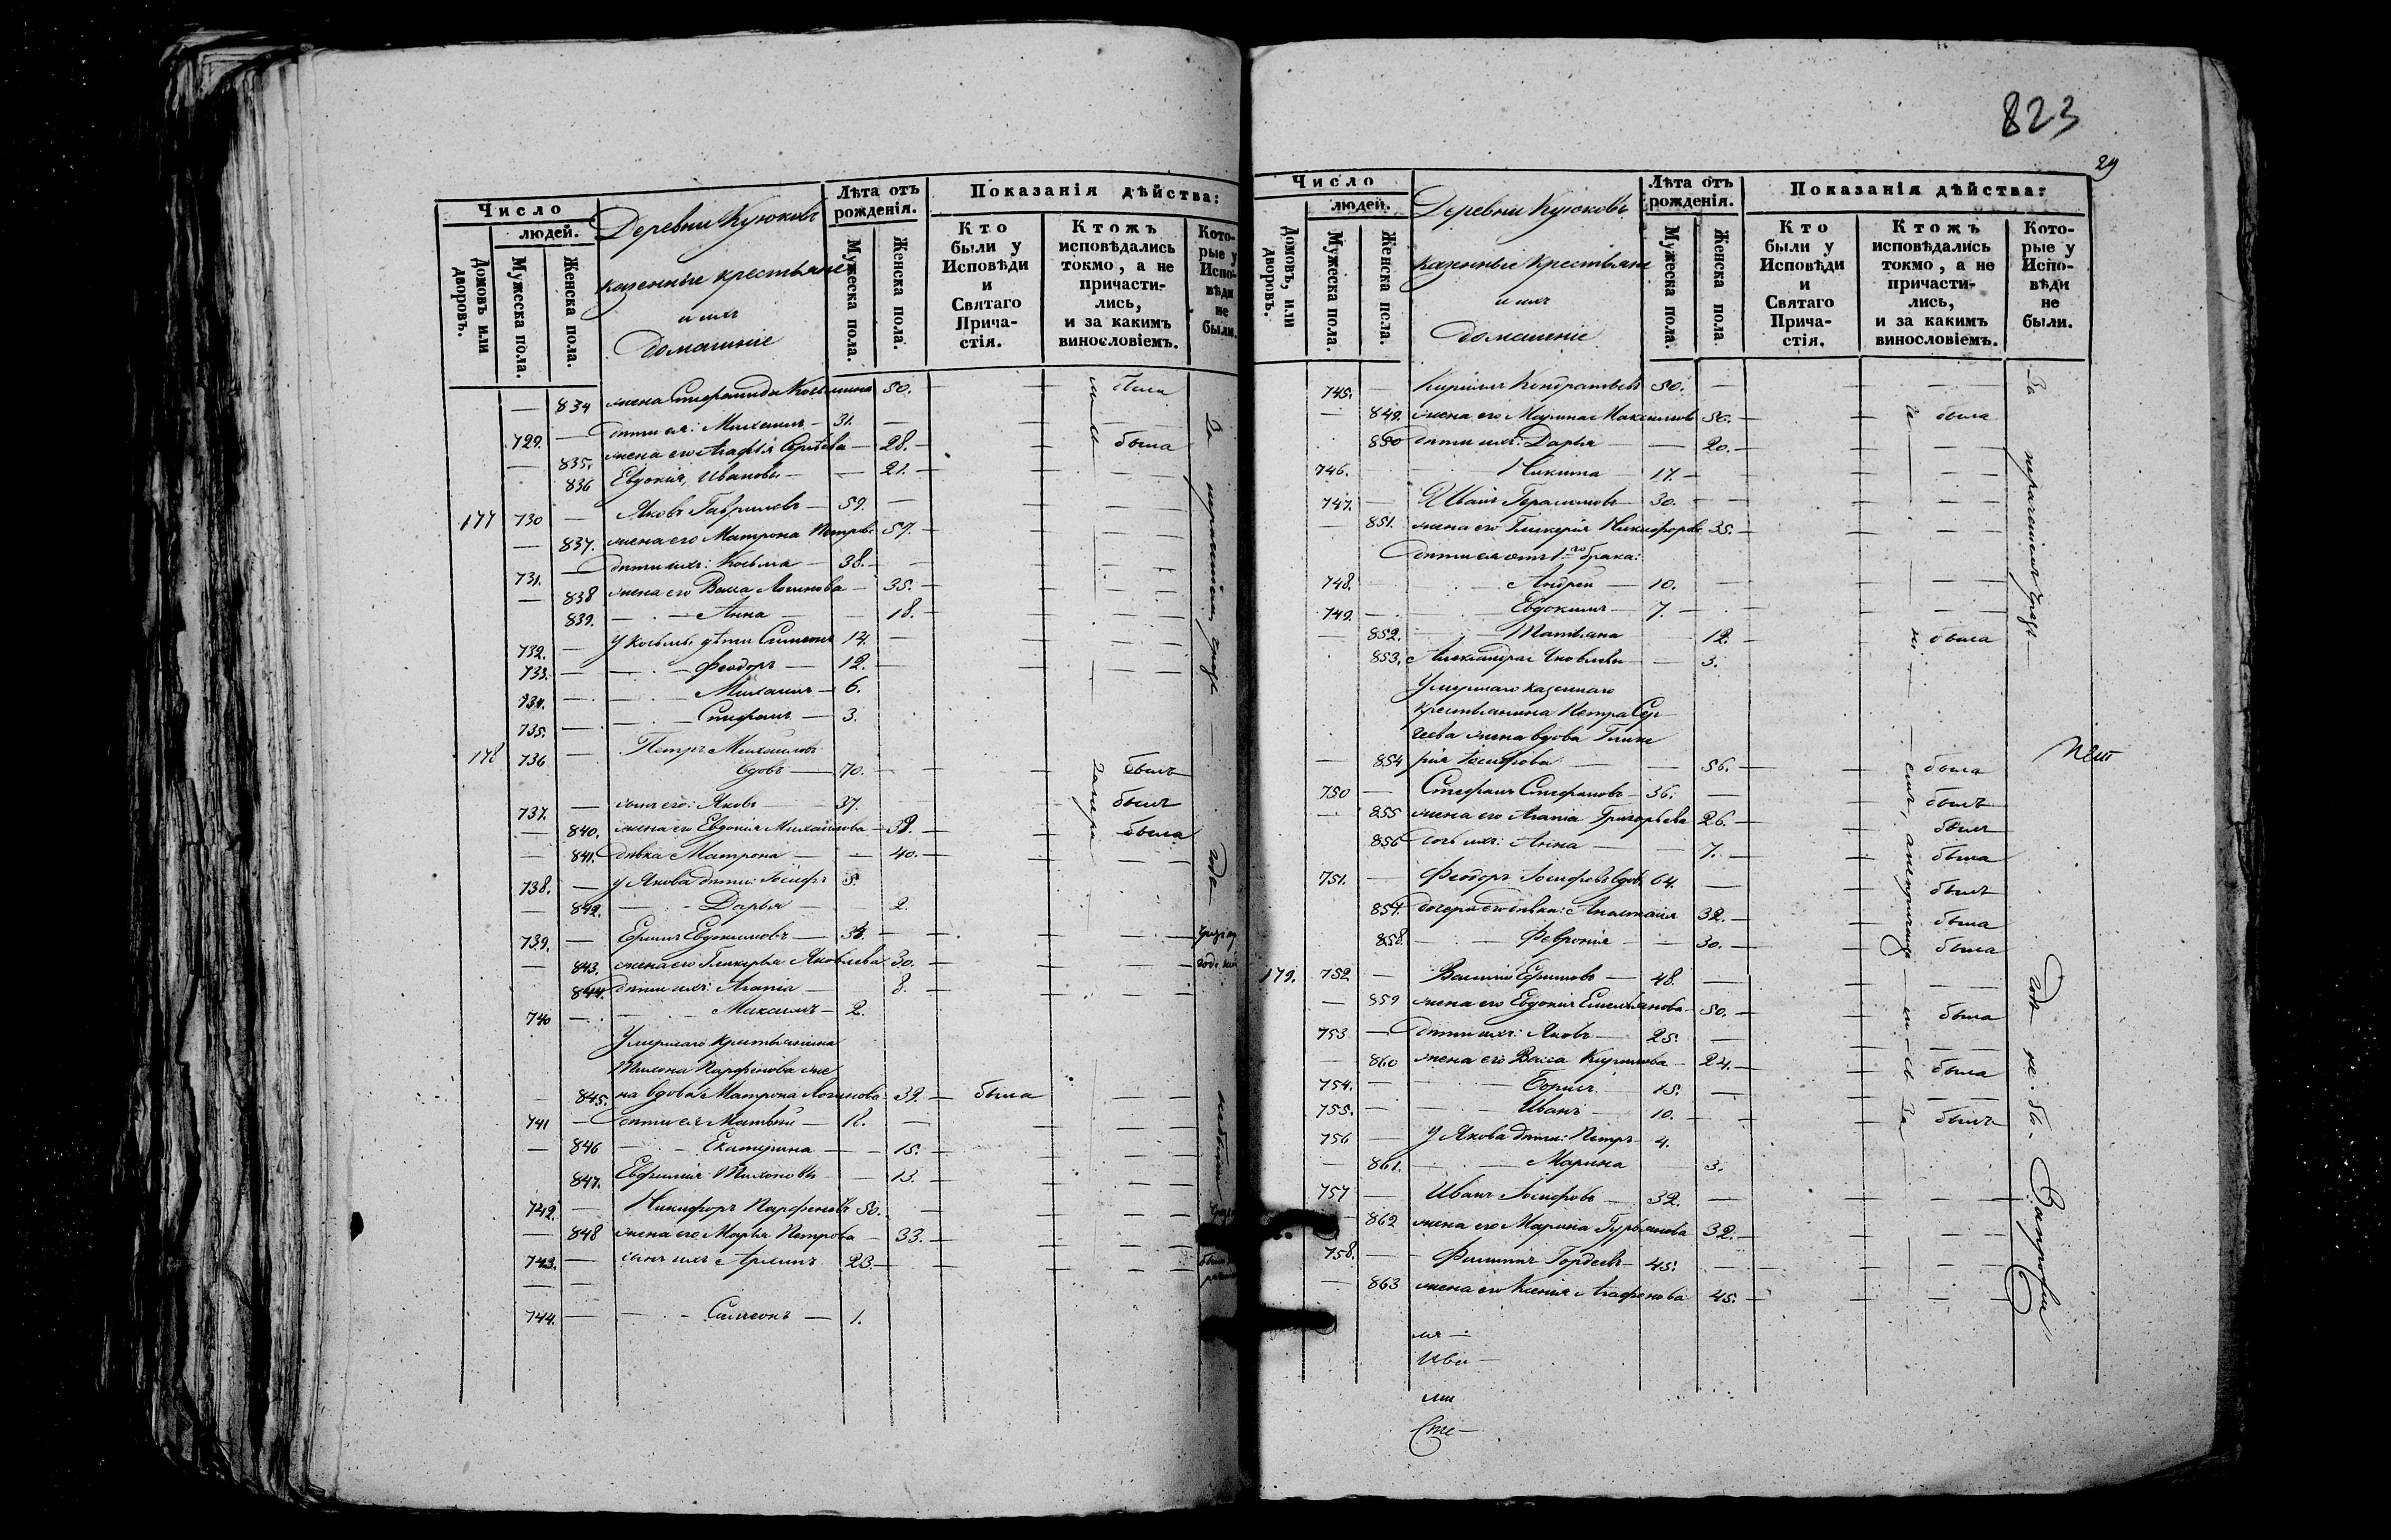 823
29
Число
людей.
Домовъ или дворовъ.
Мужеска пола.
Женска пола.
Деревни Куюковъ
казенные крестьяне
и ихъ
домашніе
Лѣта отъ рожденія.
Мужеска пола.
Женска пола.
Показанія дѣйства:
Кто были у Исповѣди и Святаго Причастія.
Ктожъ исповѣдались токмо, а не причастились, и за какимъ винословіемъ.
Которые у Исповѣди не были.
— 834 жена Стефанида Козьмина 50. была
729. — дѣти ея: Михаилъ — 31.
— 835. жена его Агафья Сергѣева — 28. была
836 Евдокія, Иванова — 21.
177 730 — Яковъ Гавриловъ — 59.
— 837. жена его Матрона Петрова 57.
731. — дѣти ихъ: Козьма — 38.
— 838 жена его Васса Логинова — 35.
839. — Анна — 18.
732. — У Козьмы дѣти Симеонъ 14.
733. — Феодоръ — 12.
734. — Михаилъ — 6.
735. — Стефанъ — 3.
178 736 — Петръ Михайловъ
вдовъ — 70. былъ
737. — сынъ его: Яковъ — 37. былъ
— 840. жена его Евдокія Михайлова — 38. была
— 841. дѣвка Матрона — 40.
738. — У Якова дѣти: Іосифъ 5.
— 842. — Дарья — 2.
739. — Ермилъ Евдокимовъ — 34.
— 843. жена его Гликерья Яковлева 30.
844. дѣти ихъ: Агапія — 8.
740 — Максимъ — 2.
Умершаго крестьянина
Тихона Парфенова же
— 845. на вдова Матрона Логинова 39. была
741 — дѣти ея Матвѣй —
— 846 — Екатерина — 15.
847. Евфимія Тихонова — 13.
742. — Никифоръ Парфеновъ 50.
— 848 жена его Марья Петрова — 33.
743. — сынъ ихъ 23.
744. — Симеонъ — 1.
Число
людей.
Домовъ, или дворовъ.
Мужеска пола.
Женска пола.
Деревни Куюковъ
казенные крестьяне
и ихъ
домашніе
Лѣта отъ рожденія.
Мужеска пола.
Женска пола
Показанія дѣйства:
Кто были у Исповѣди и Святаго Причастія.
Ктожъ исповѣдались токмо, а не причастились, и за какимъ винословіемъ.
Которые у Исповѣди не были.
745. — Кирилъ Кондратьевъ 50.
— 849. жена его Марина Максимова 56. была
850 дѣти ихъ: Дарья — 20.
746. Никита — 17.
747. — Иванъ Герасимовъ — 30.
— 851. жена его Гликерія Никифорова 35.
дѣти ея отъ 1го брака:
748. — Андрей — 10.
749. — Евдокимъ — 7.
— 852. Татьяна — 12. была
853. Александра Яковлева — 3.
Умершаго казеннаго
крестьянина Петра Сер
геева жена вдова Глике
— 854 рія Іосифова — 56. была
750 — Стефанъ Стефановъ — 36. былъ
— 855 жена его Агапія Григорьева 26. была
856 дочь ихъ: Анна — 7. была
751. — Феодоръ Іосифовъ вдовъ 64. былъ
857. дочери его дѣвки: Анастасія 32. была
858. — Февронія — 30. была
179. 752 — Василій Ефимовъ — 48.
— 859 жена его Евдокія Емельянова — 50. была
753 — дѣти ихъ: Яковъ — 25.
— 860 жена его Васса Кирилова — 24. была
754. — Борисъ — 15.
755. — Иванъ — 10. былъ
756 — У Якова дѣти: Петръ 4.
— 861. — Марина 3.
757 — Иванъ Іосифовъ — 32.
— 862 жена его Марина Гурьянова 32.
758. — Филиппъ Гордеевъ — 45.
— 863 жена его Ксенія Агафонова 45.
Ива —
Сте —